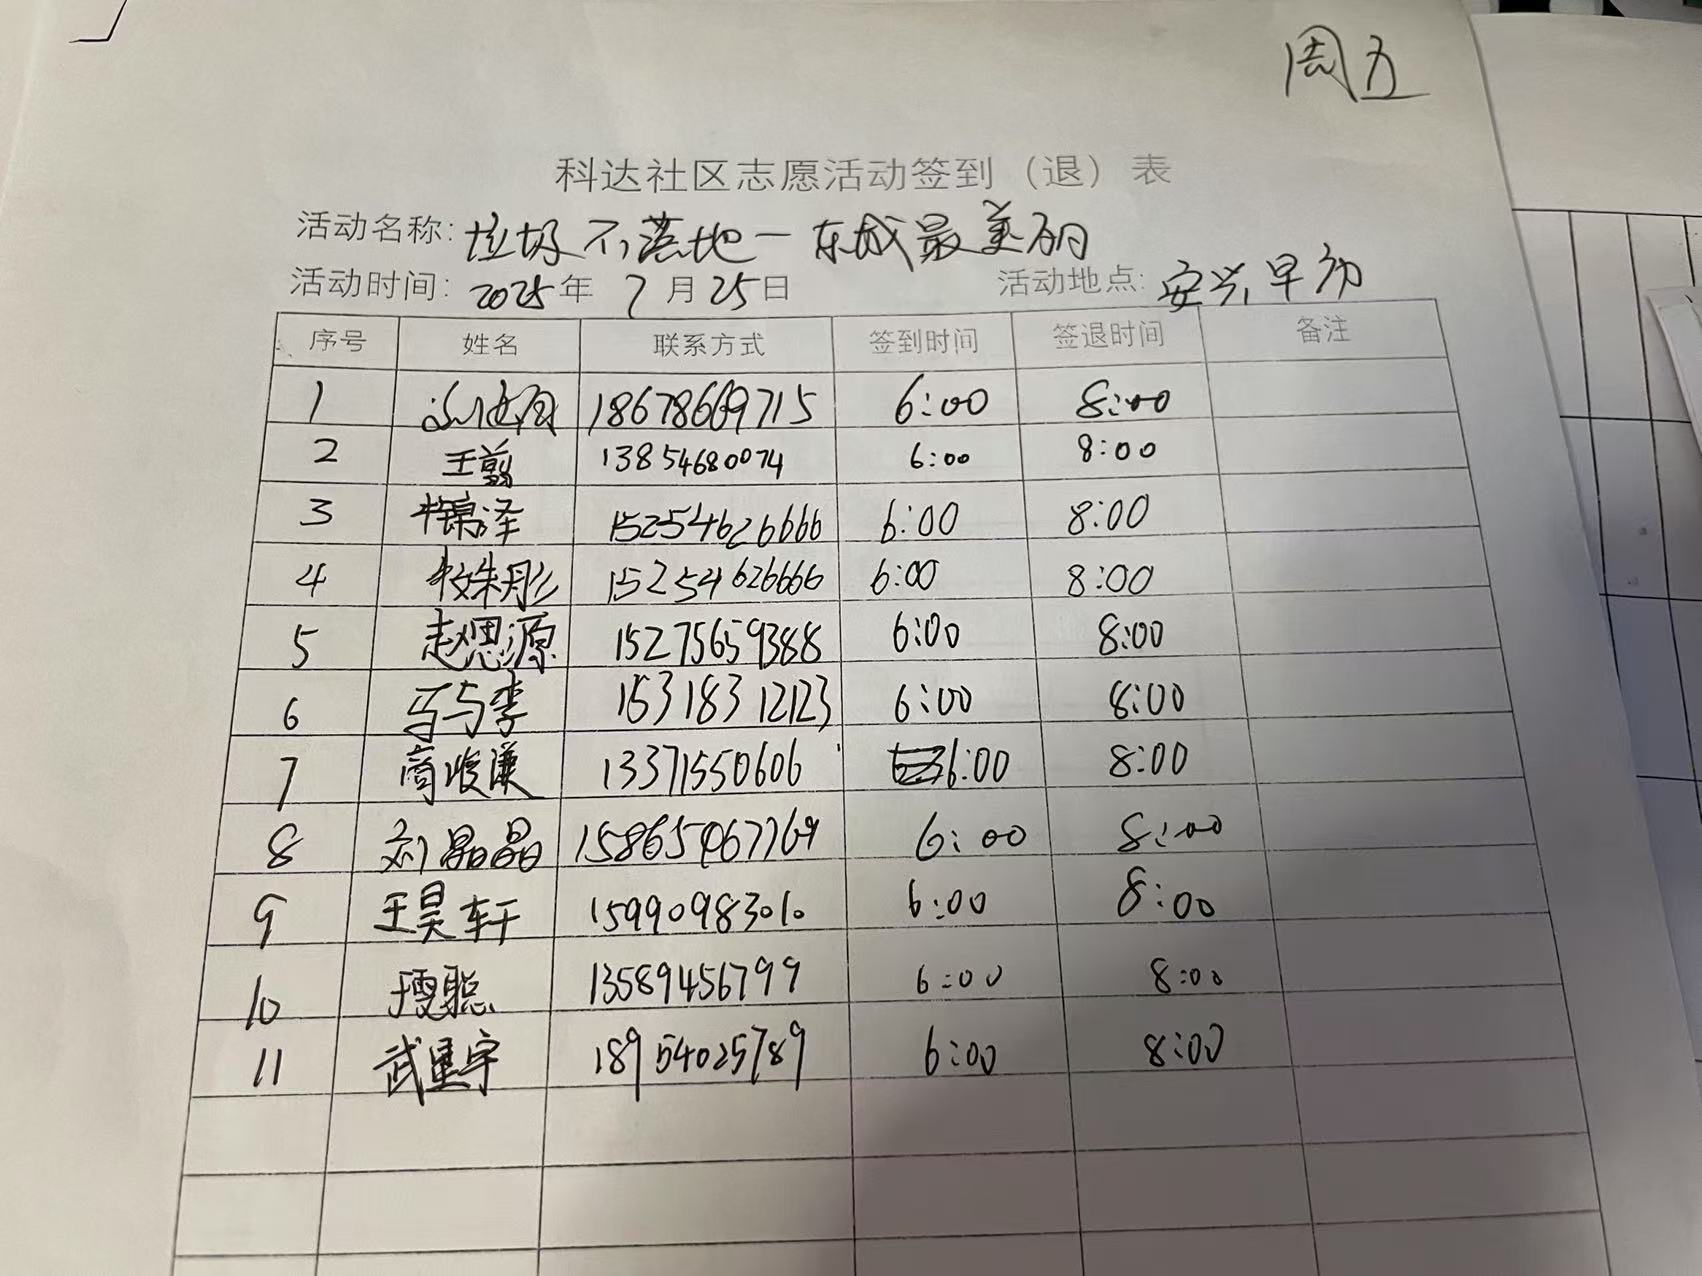 周五
科达社区志愿活动签到（退）表
活动名称: 垃圾不落地一东城最美丽
活动时间: 2025年 7月25日 活动地点: 安兴早市
序号 姓名 联系方式 签到时间 签退时间 备注
1 18678669715 6:00 8:00
2 王翦 13854680074 6:00 8:00
3 15254626666 6:00 8:00
4 15254626666 6:00 8:00
5 赵思源 15275659388 6:00 8:00
6 马与李 15318312123 6:00 8:00
7 商浚谦 13371550606 6:00 8:00
8 刘晶晶 15865467769 6:00 8:00
9 王昊轩 15990983010 6:00 8:00
10 13589456799 6:00 8:00
11 武星宇 18954025789 6:00 8:00